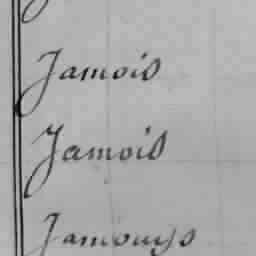 Jamois
Jamois
Jamouys